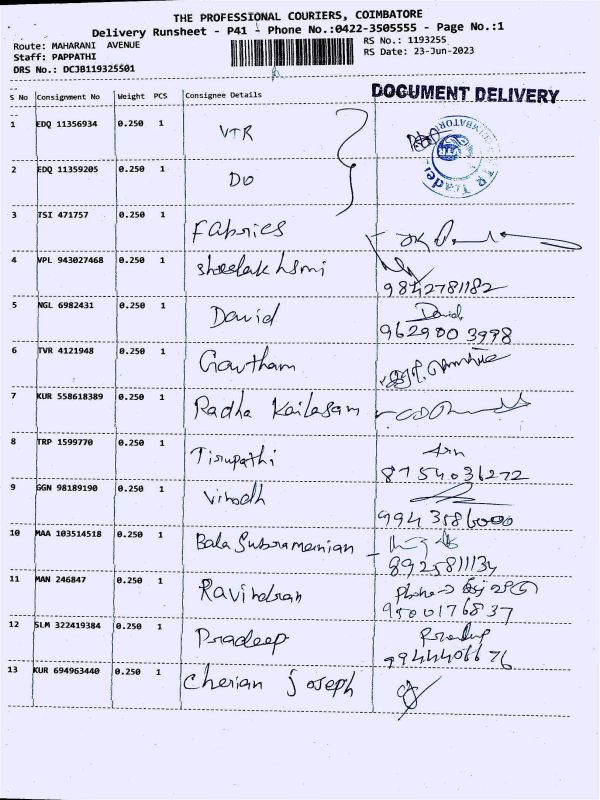 THE PROFESSIONAL COURIERS, COIMBATORE
Delivery Runsheet - P41 - Phone No.:0422-3505555 - Page No.:1
Route: MAHARANI AVENUE RS No.: 1193255
Staff: PAPPATHI RS Date: 23-Jun-2023
DRS No.: DCJB119325501
DOCUMENT DELIVERY
S No Consignment No Weight PCS Consignee Details
1 EDQ 11356934 0.250 1 VTR
2 EDQ 11359205 0.250 1 DO
3 TSI 471757 0.250 1 Fabrics
4 VPL 943027468 0.250 1 sheelakshmi
9842781182
5 NGL 6982431 0.250 1 David David
9629003998
6 TVR 4121948 0.250 1 Gowtham
7 KUR 558618389 0.250 1 Radha Kailasam
8 TRP 1599770 0.250 1 Tirupathi
8754036272
9 GGN 98189190 0.250 1 Vinodh
9943586000
10 MAA 103514518 0.250 1 Bala Subramanian
8925811134
11 MAN 246847 0.250 1 Ravindran
9500176837
12 SLM 322419384 0.250 1 Pradeep
9944406676
13 KUR 694963440 0.250 1 Cherian joseph